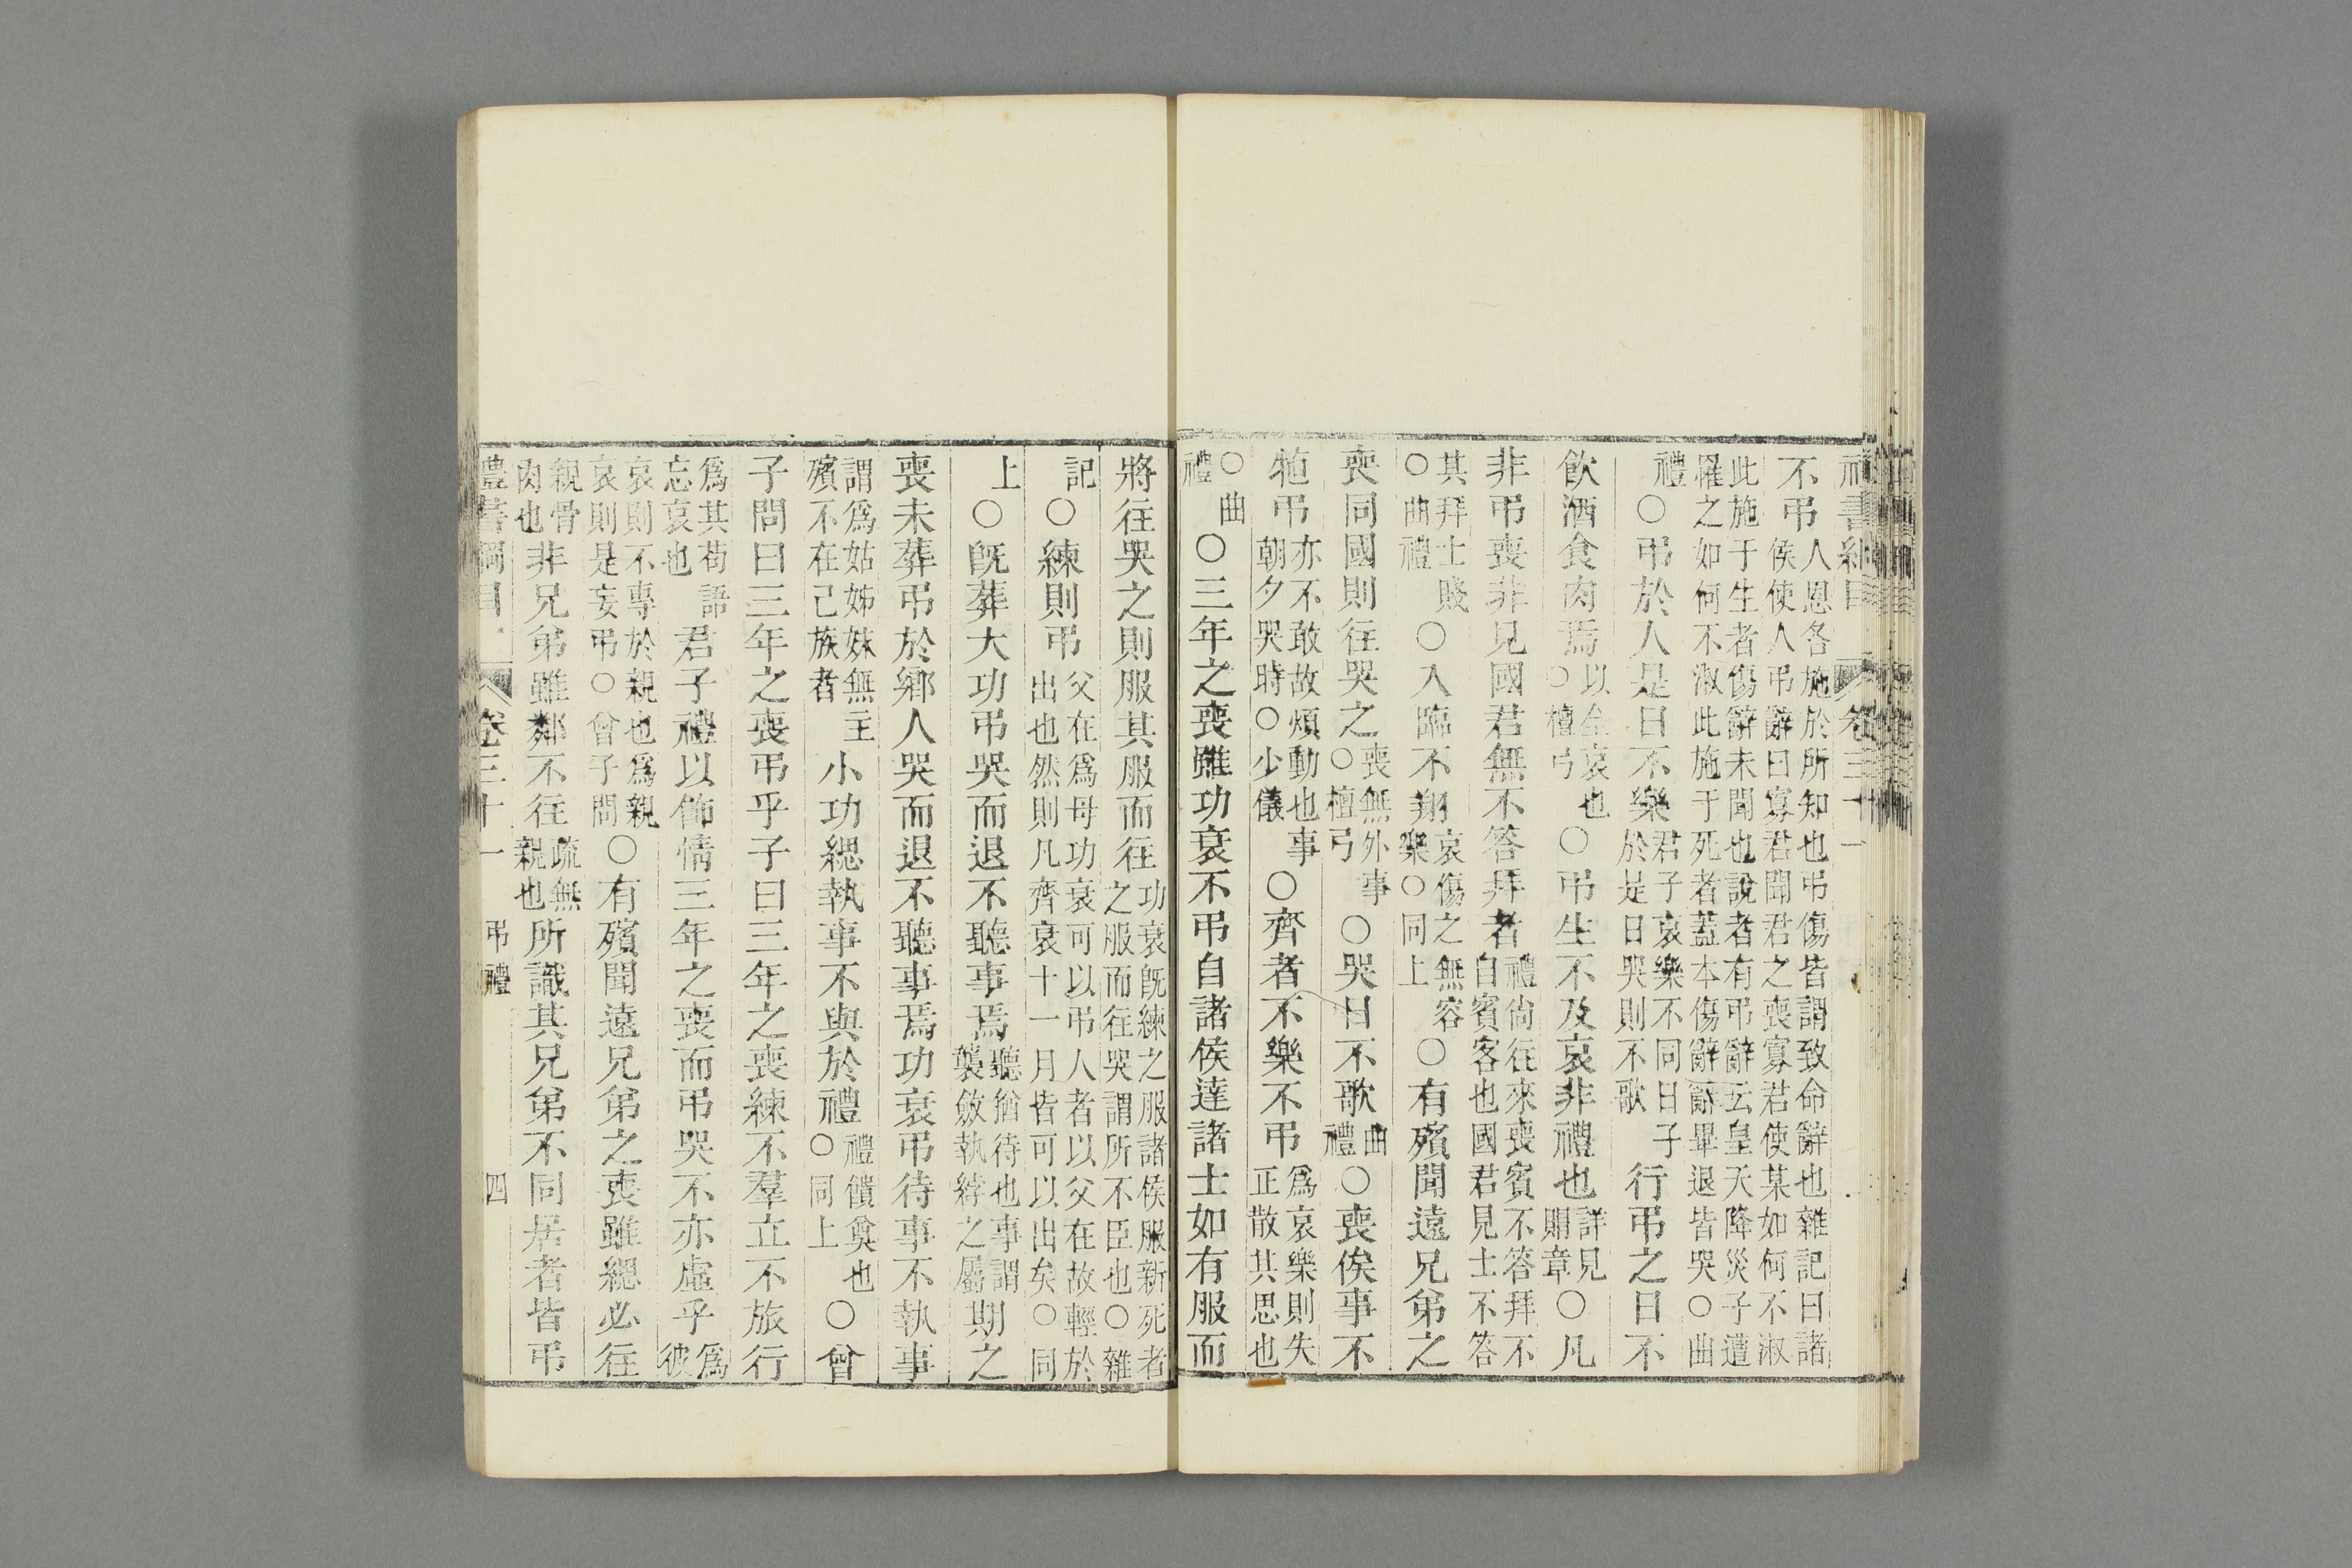 禮書綱目　卷三十一
不弔人恩各施於所知也弔傷皆謂致命辭也雜記曰諸侯使人弔辭曰寡君聞君之喪寡君使某如何不淑
此施于生者傷辭未聞也說者有弔辭云皇天降災子遭罹之如何不淑此施于死者蓋本傷辭辭畢退皆哭○曲
禮○弔於人是日不樂君子哀樂不同日子於是日哭則不歌行弔之日不
飲酒食肉焉以全哀也○檀弓○弔生不及哀非禮也詳見賵章○凡
非弔喪非見國君無不答拜者禮尙往來喪賓不答拜不自賓客也國君見士不答
其拜士賤○曲禮○入臨不翔哀傷之無容樂○同上○有殯聞遠兄弟之
喪同國則往哭之喪無外事○檀弓○哭日不歌曲禮○喪俟事不
犆弔亦不敢故煩動也事朝夕哭時○少儀○齊者不樂不弔爲哀樂則失正散其思也
○曲禮○三年之喪雖功衰不弔自諸侯達諸士如有服而
將往哭之則服其服而往功衰旣練之服諸侯服新死者之服而往哭謂所不臣也○雜
記○練則弔父在爲母功衰可以弔人者以父在故輕於出也然則凡齊衰十一月皆可以出矣○同
上○旣葬大功弔哭而退不聽事焉聽猶待也事謂襲斂執紼之屬期之
喪未葬弔於鄕人哭而退不聽事焉功衰弔待事不執事
謂爲姑姊妹無主殯不在己族者小功緦執事不與於禮禮饋奠也○同上○曾
子問曰三年之喪弔乎子曰三年之喪練不羣立不旅行
君子禮以飾情三年之喪而弔哭不亦虛乎爲彼
哀則不專於親也爲親哀則是妄弔○曾子問○有殯聞遠兄弟之喪雖緦必往
親骨肉也非兄弟雖鄰不往疏無親也所識其兄弟不同居者皆弔
禮書綱目　卷三十一　弔禮　四